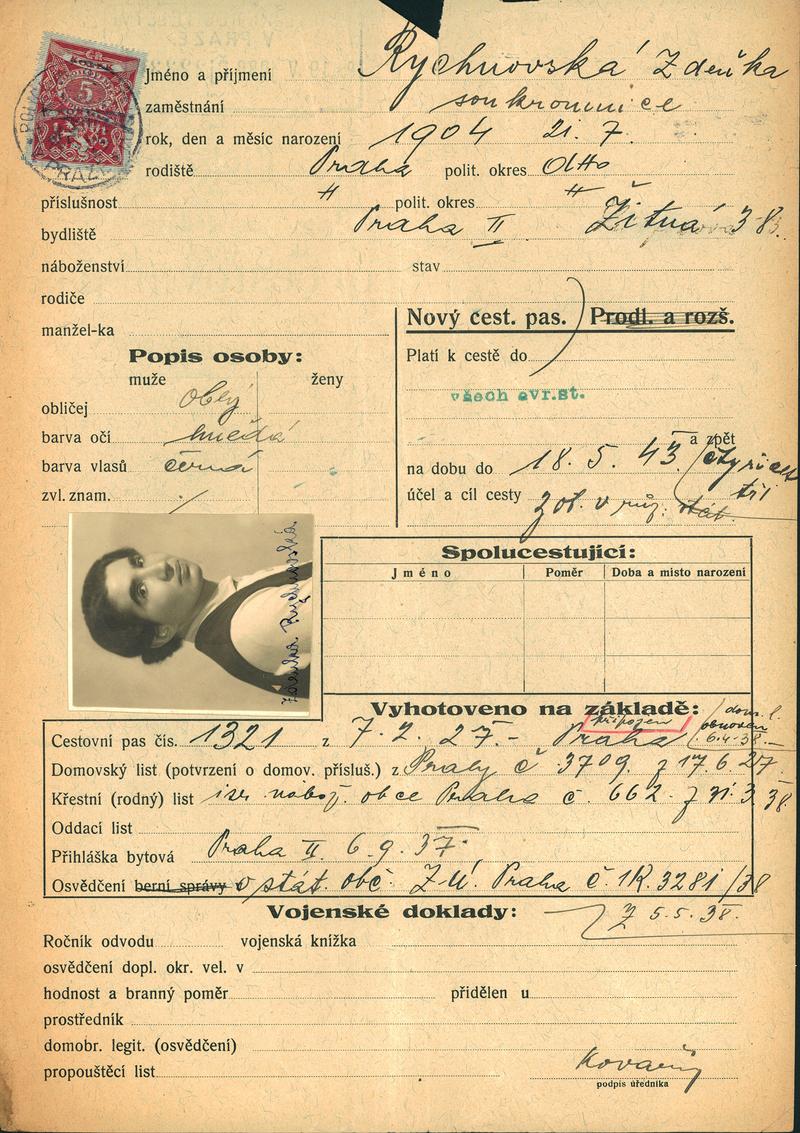 ČR
5
PRAZE
Jméno a příjmení Rychnovská Zdeňka
zaměstnání soukromnice
rok, den a měsíc narození 1904 21. 7.
rodiště Praha polit. okres dtto
příslušnost " polit. okres "
bydliště Praha II Žitná 38
náboženství stav
rodiče
manžel-ka
Nový cest. pas. Prodl. a rozš.
Popis osoby:
muže ženy
Platí k cestě do
všech evr.st.
obličej oblý
barva očí hnědá
barva vlasů černá
a zpět
na dobu do 18. 5. 43. čtyřicet
tři
zvl. znam. /
účel a cíl cesty zot. v růz. stát.
Zdeňka Rychnovská
Spolucestující:
Jméno Poměr Doba a misto narození
Vyhotoveno na základě:
připojen
dom. l.
obnoven
6.4.38.
Cestovní pas čís. 1321 z 7. 2. 27.- Praha
Domovský list (potvrzení o domov. přísluš.) z Prahy č 3709. z 17.6 27.
Křestní (rodný) list isr. nábož. obce Praha č. 662. z 31. 3. 38.
Oddací list
Přihláška bytová Praha II 6. 9. 37.
Osvědčení berní správy o stát. obč. Z.Ú. Praha č. 1R. 3281/38
z 5. 5. 38.
Vojenské doklady:
Ročník odvodu vojenská knížka
osvědčení dopl. okr. vel. v
hodnost a branný poměr přidělen u
prostředník
domobr. legit. (osvědčení)
propouštěcí list
Kovařij
podpis úředníka